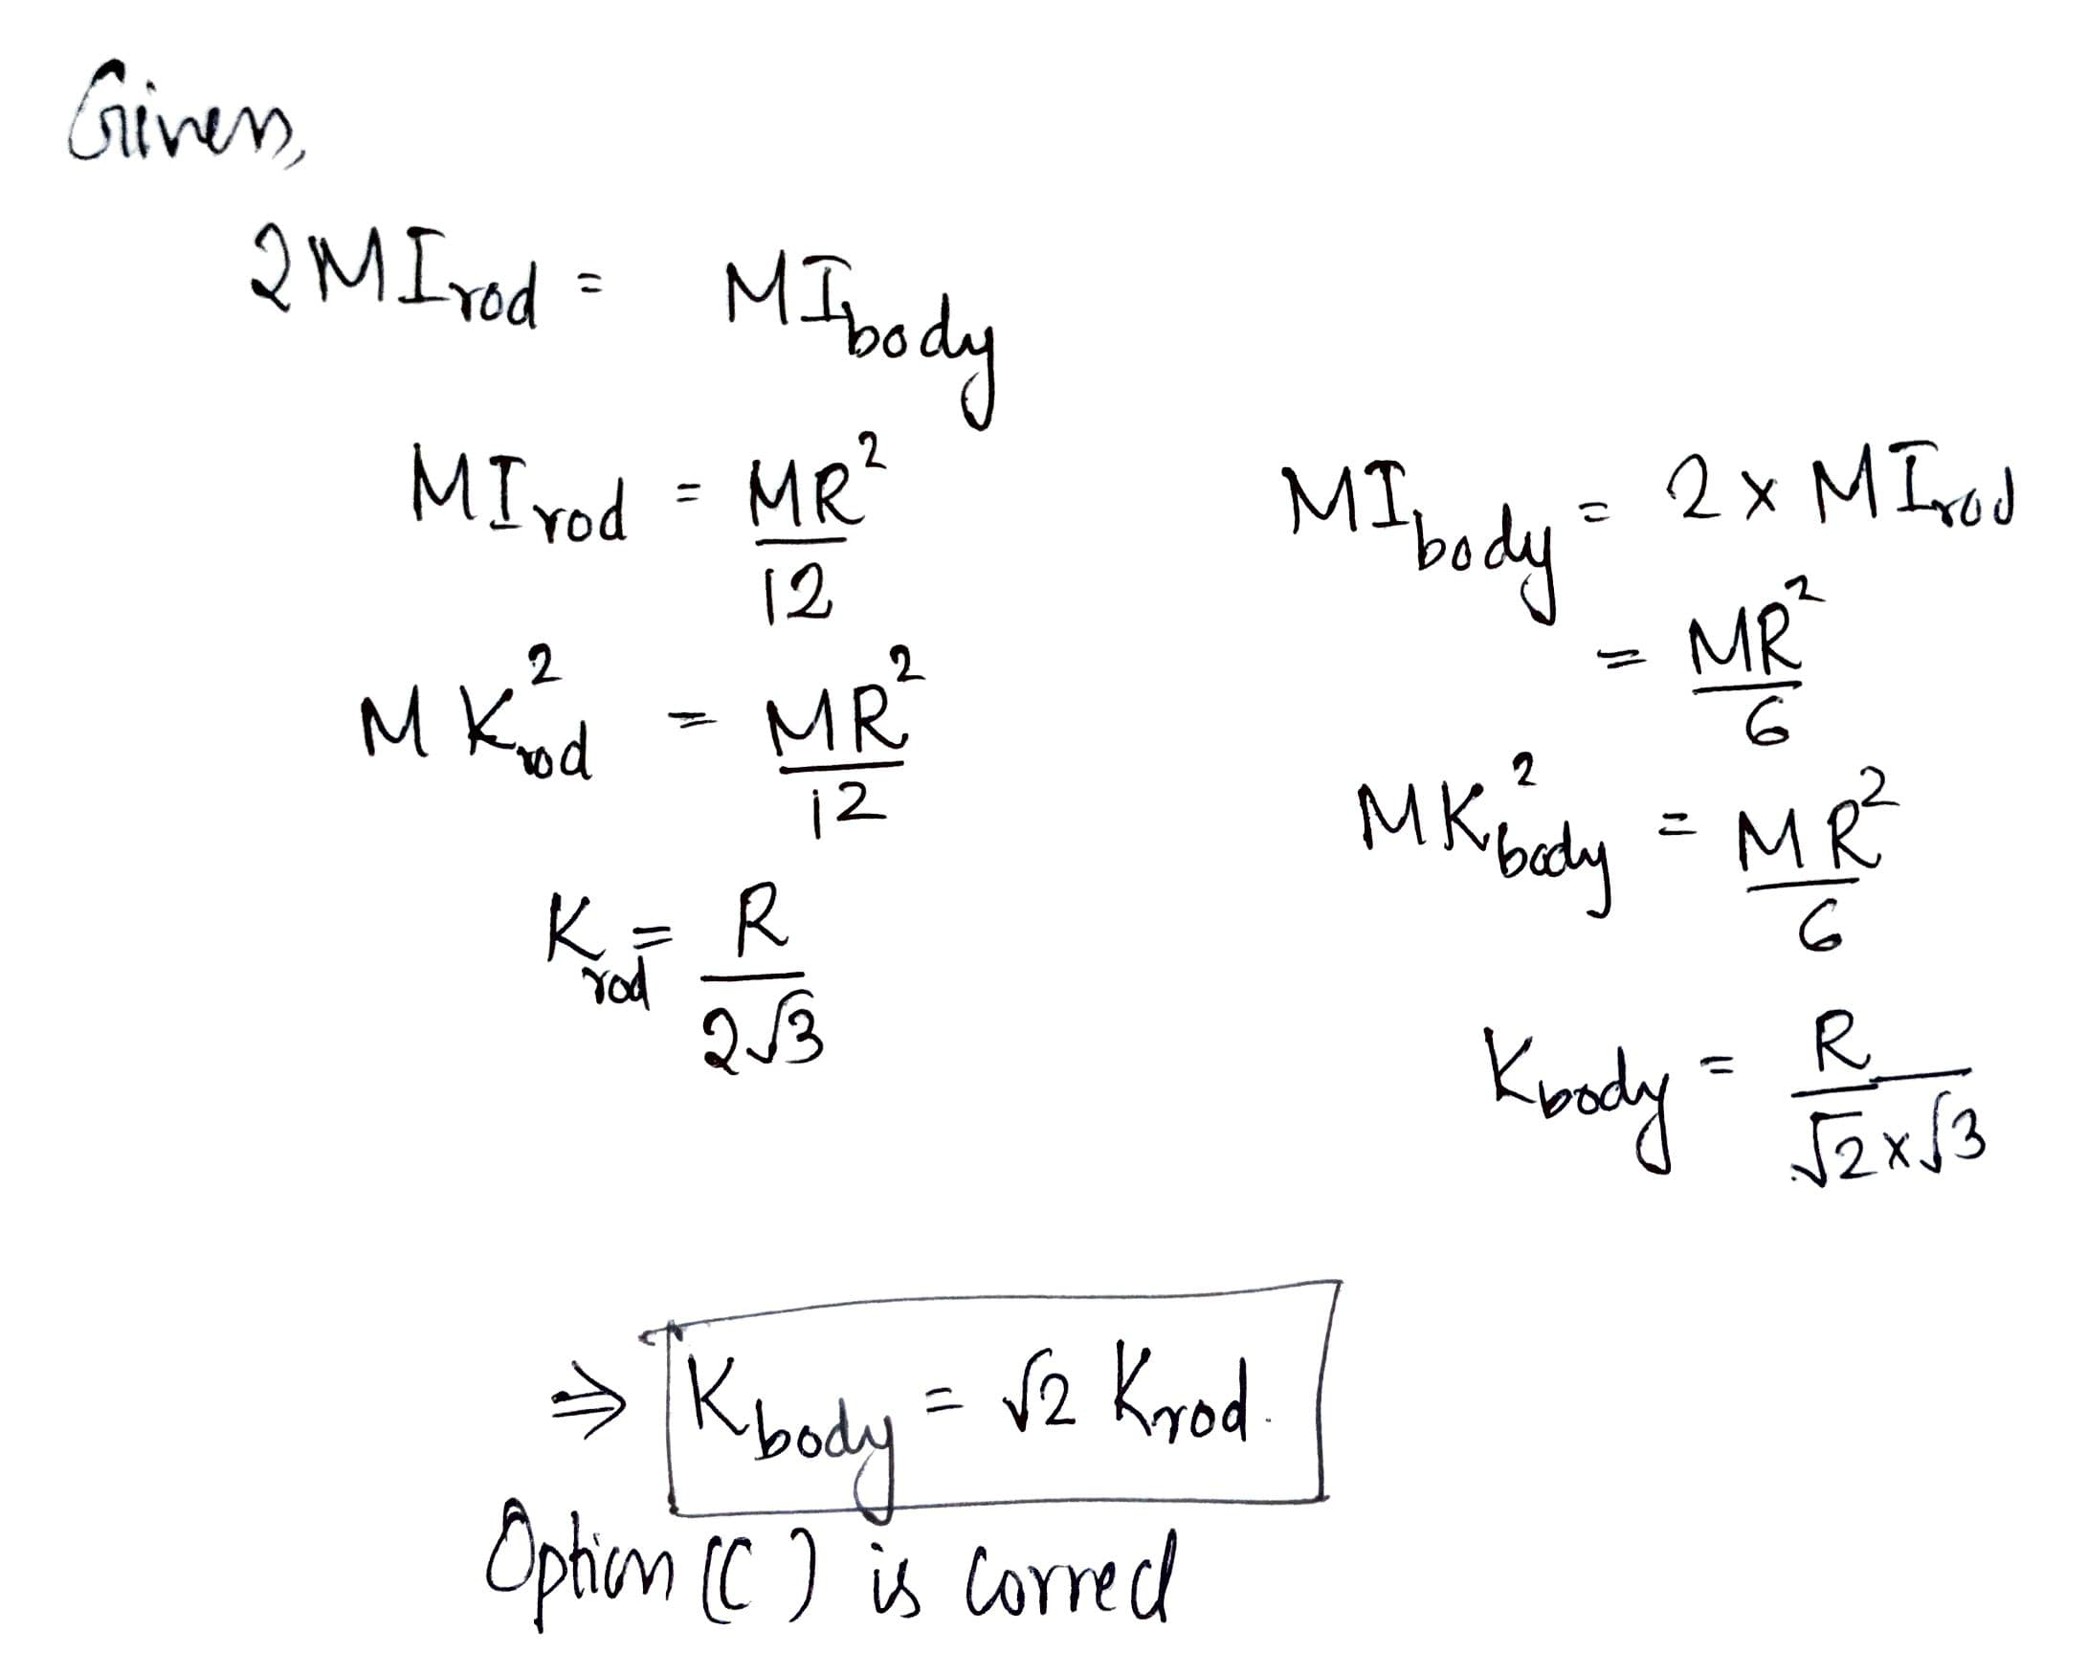 Given,
2MI_rod = MI_body
MI_rod = MR²/12
MK²_rod = MR²/12
K_rod = R/2√3
MI_body = 2 x MI_rod
= MR²/6
MK²_body = MR²/6
K_body = R/√2x√3
⇒ K_body = √2 K_rod.
Option (C) is correct